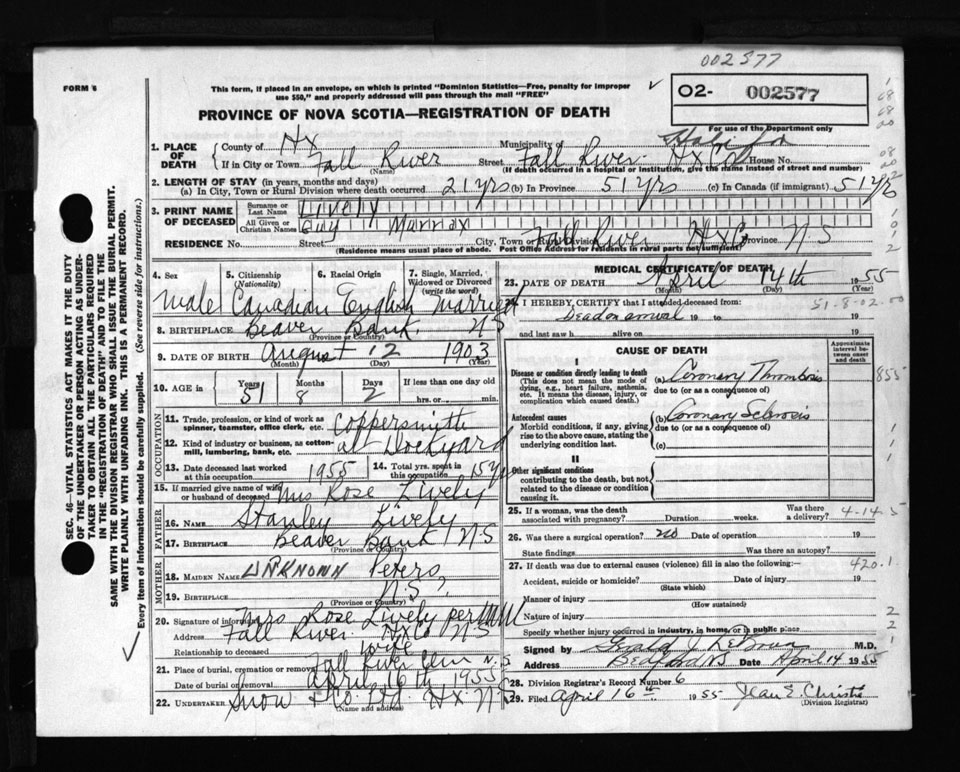 002577
FORM 6
This form, if placed in an envelope, on which is printed "Dominion Statistics—Free, penalty for improper
use $50," and properly addressed will pass through the mail "FREE"
O2- 002577
For use of the Department only
PROVINCE OF NOVA SCOTIA—REGISTRATION OF DEATH
1. PLACE OF DEATH
County of Hx Municipality of Halifax
If in City or Town Fall River (Name) Street Fall River Hx Co House No.
(If death occurred in a hospital or institution, give the name instead of street and number)
2. LENGTH OF STAY (in years, months and days)
(a) In City, Town or Rural Division where death occurred 21 yrs (b) In Province 51 yrs (c) In Canada (if immigrant) 51 yrs
3. PRINT NAME OF DECEASED
Surname or Last Name Lively
All Given or Christian Names Guy Murray
RESIDENCE No. Street City, Town or Rural Division Fall River Hx Co Province N S
(Residence means usual place of abode. Post Office Address for residents in rural parts not sufficient)
4. Sex 5. Citizenship (Nationality) 6. Racial Origin 7. Single, Married, Widowed or Divorced (write the word)
male Canadian English Married
8. BIRTHPLACE Beaver Bank, N S
(Province or Country)
9. DATE OF BIRTH August 12 1903
(Month) (Day) (Year)
10. AGE in Years Months Days If less than one day old
51 8 2 hrs. or min.
OCCUPATION
11. Trade, profession, or kind of work as spinner, teamster, office clerk, etc. Coppersmith
12. Kind of industry or business, as cotton-mill, lumbering, bank, etc. at Dockyard
13. Date deceased last worked at this occupation 1955 14. Total yrs. spent in this occupation 15 yrs
15. If married give name of wife or husband of deceased Mrs Rose Lively
FATHER
16. NAME Stanley Lively
17. BIRTHPLACE Beaver Bank N S
(Province or Country)
MOTHER
18. MAIDEN NAME UNKNOWN Peters
19. BIRTHPLACE N S ?
(Province or Country)
20. Signature of informant Mrs Rose Lively per
Address Fall River Hx Co N S
Relationship to deceased wife
21. Place of burial, cremation or removal Fall River Cem N. S.
Date of burial or removal April 16th 1955
22. UNDERTAKER Snow & Co. Ltd. Hx. N S
(Name and address)
MEDICAL CERTIFICATE OF DEATH
23. DATE OF DEATH April 14th 1955
(Month) (Day) (Year)
I HEREBY CERTIFY that I attended deceased from:
51-8-02.00
Dead on arrival 19 to 19
and last saw h alive on 19
CAUSE OF DEATH
Approximate interval between onset and death
I
Disease or condition directly leading to death
(This does not mean the mode of dying, e.g., heart failure, asthenia, etc. It means the disease, injury, or complication which caused death.)
(a) Coronary Thrombosis
due to (or as a consequence of)
855
Antecedent causes
Morbid conditions, if any, giving rise to the above cause, stating the underlying condition last.
(b) Coronary Sclerosis
due to (or as a consequence of)
(c)
II
Other significant conditions
contributing to the death, but not related to the disease or condition causing it.
25. If a woman, was the death associated with pregnancy? Duration weeks. Was there a delivery? 4-14-5
26. Was there a surgical operation? no Date of operation 19
State findings Was there an autopsy?
27. If death was due to external causes (violence) fill in also the following:— 420.1
Accident, suicide or homicide? Date of injury 19
(State which)
Manner of injury
(How sustained)
Nature of injury
Specify whether injury occurred in industry, in home, or in public place
Signed by M.D.
Address Bedford NS Date April 14 1955
28. Division Registrar's Record Number 6
29. Filed April 16th 1955 Jean E. Christie
(Division Registrar)
SEC. 46—VITAL STATISTICS ACT MAKES IT THE DUTY
OF THE UNDERTAKER OR PERSON ACTING AS UNDER-
TAKER TO OBTAIN ALL THE PARTICULARS REQUIRED
IN THE "REGISTRATION OF DEATH" AND TO FILE THE
SAME WITH THE DIVISION REGISTRAR WHO SHALL ISSUE THE BURIAL PERMIT.
WRITE PLAINLY WITH UNFADING INK. THIS IS A PERMANENT RECORD.
Every item of information should be carefully supplied. (See reverse side for instructions.)